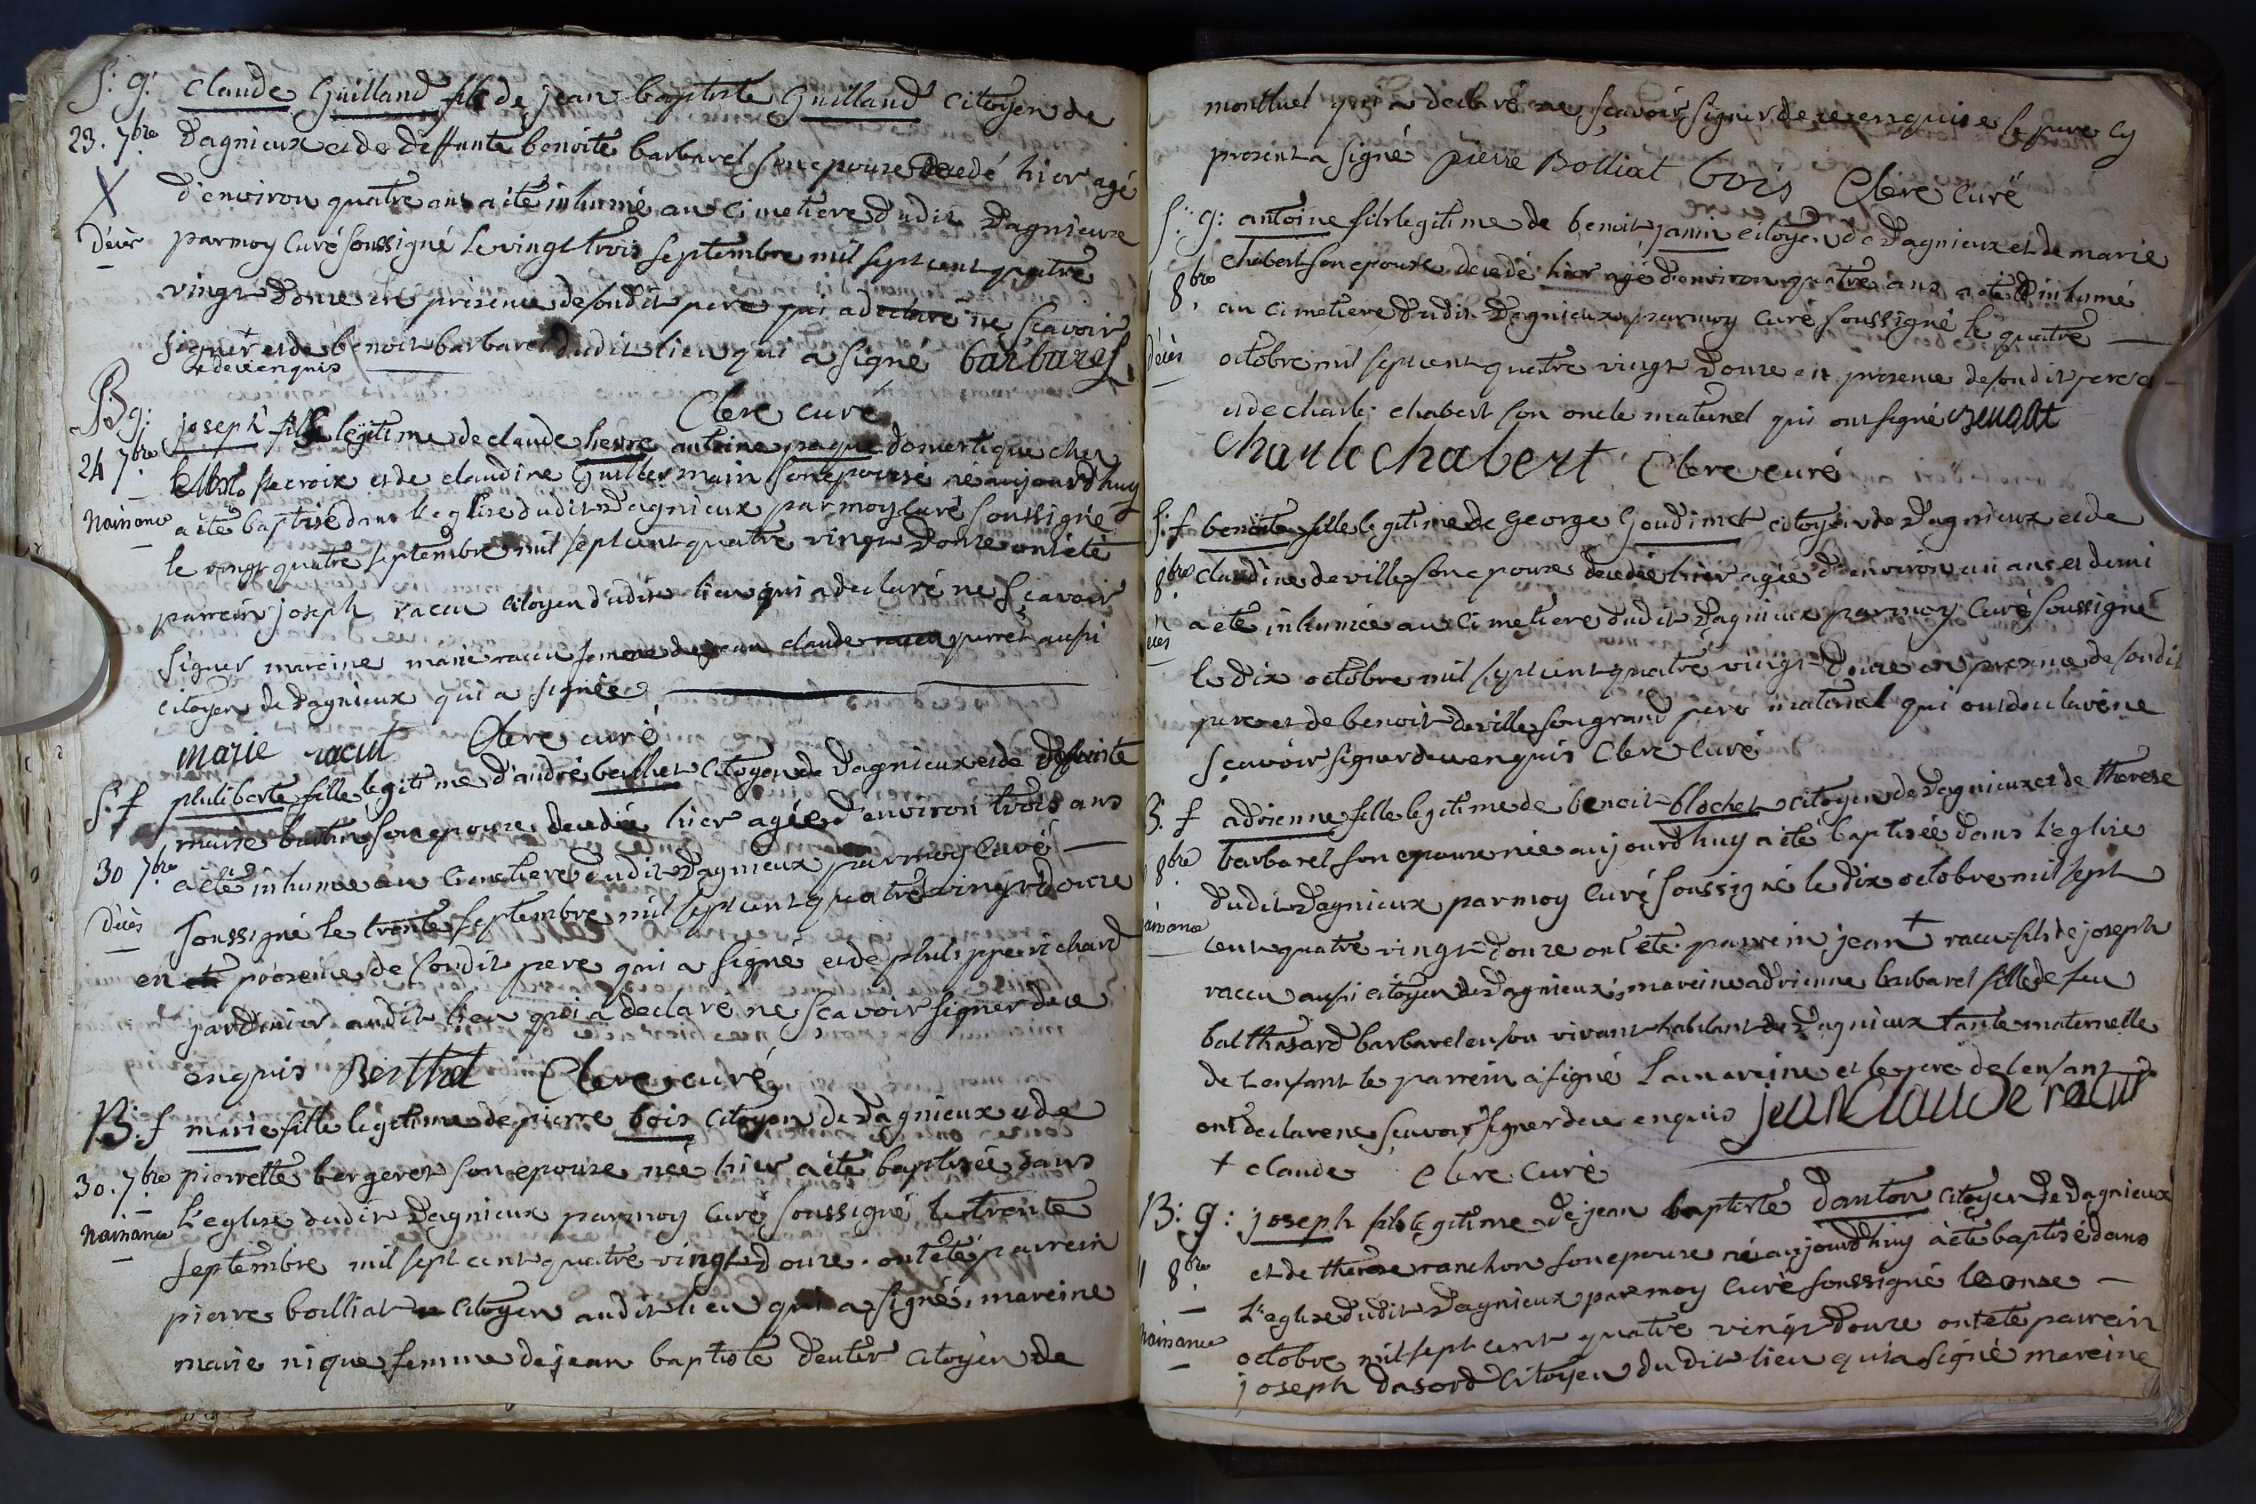 S. g. claude Guilland fils de jean baptiste Guilland citoyen de
23. 7bre dagnieux et de deffunte benoite barbarel son epouse decedé hier agé
X d'environ quatre ans a été inhumé au cimetiere dudit dagnieux
décès par moy curé soussigné le vingt trois septembre mil sept cent quatre
vingt douze en présence de sondit pere qui a declaré ne sçavoir
signer et de benoit barbarel dudit lieu qui a signé barbarel
de ce enquis
Clere curé
B g: joseph fils légitime de claude antoine paque domestique chez
24 7bre lacroix et de claudine Guillermain son epouse né aujourdhuy
naisance a été baptisé dans l'eglise dudit dagnieux par moy curé soussigné
le vingt quatre septembre mil sept cent quatre vingt douze ont été
parrein joseph racu citoyen dudit lieu qui a declaré ne sçavoir
signer mareine marie racu femme de claude purret aussi
citoyen de dagnieux qui a signée
marie racut Clere curé
S. f philiberte fille legitime d'andré berthet citoyen de dagnieux et de defunte
marie buttin son epouse decedée hier agée d'environ trois ans
30 7bre a été inhumée au cimetiere dudit dagnieux par moy curé
décès soussigné le trente septembre mil sept cent quatre vingt douze
en présence de sondit pere qui a signé et de philippe richard
jardinier audit lieu qui a declare ne sçavoir signer de ce
enquis Berthet Clere curé
B. f marie fille legitime de pierre bois citoyen de dagnieux et de
30. 7bre pierrette bergeret son epouse née hier a été baptisée dans
naisance l'eglise dudit dagnieux par moy curé soussigné le trente
septembre mil sept cent quatre vingt douze. ont été parrein
pierre bolliat citoyen audit lieu qui a signé, mareine
marie nique femme de jean baptiste deuter citoyen de
montluel qui a declaré ne sçavoir signer de ce enquise le pere cy
present a signé pierre Bolliat bois Clere curé
S. g: antoine fils legitime de benoit janin citoyen de dagnieux et de marie
8bre chabert son epouse decedé hier agé d'environ quatre ans a été inhumé
au cimetiere dudit dagnieux par moy curé soussigné le quatre
décès octobre mil sept cent quatre vingt douze en présence de sondit pere
et de charle chabert son oncle maternel qui ont signé
charle chabert Clere curé
S. f benoite fille legitime de George Goudimet citoyen de dagnieux et de
8bre claudine deville son epouse decedée hier agée d'environ un ans et demi
a été inhumée au cimetiere dudit dagnieux par moy curé soussigné
le dix octobre mil sept cent quatre vingt douze en présence de sondit
pere et de benoit deville son grand pere maternel qui ont declaré ne
sçavoir signer de ce enquis Clere curé
B. f adrienne fille legitime de benoit blochet citoyen de dagnieux et de therese
8bre barbarel son epouse née aujourdhuy a été baptisée dans l'eglise
dudit dagnieux par moy curé soussigné le dix octobre mil sept
naisance cent quatre vingt douze ont été parrein jean + racu fils de joseph
racu aussi citoyen de dagnieux, mareine adrienne barbarel fille de feu
balthasard barbarel en son vivant habitant de dagnieux tante maternelle
de l'enfant le parrein a signé la mareine et le pere de l'enfant
ont declare ne sçavoir signer de ce enquis jean Claude racut
+ claude Clere curé
B: g: joseph fils legitime de jean baptiste danton citoyen de dagnieux
8bre et de therese ranchon son epouse né aujourdhuy a été baptisé dans
l'eglise dudit dagnieux par moy curé soussigné le onze
naisance octobre mil sept cent quatre vingt douze ont été parrein
joseph dasord citoyen dudit lieu qui a signé mareine